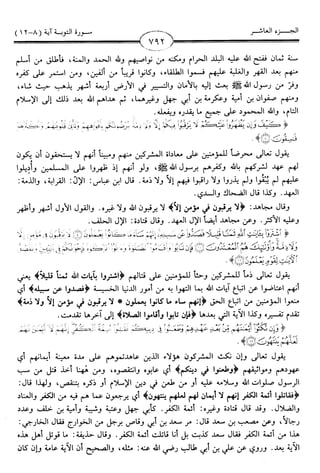 الجـــزء العاشـــر
سورة التوبـة آية (٨-١٢)
٧٩٢
سنة ثمان ففتح الله عليه البلد الحرام ومكنه من نواصيهم ولله الحمد والمنة، فأطلق من أسلم
منهم بعد القهر والغلبة عليهم فسموا الطلقاء، وكانوا قريباً من ألفين، ومن استمر على كفره
وفر من رسول الله ﷺ بعث إليه بالأمان والتسيير في الأرض أربعة أشهر يذهب حيث شاء،
ومنهم صفوان بن أمية وعكرمة بن أبي جهل وغيرهما، ثم هداهم الله بعد ذلك إلى الإسلام
التام، والله المحمود على جميع ما يقدره ويفعله.
﴿كَيْفَ وَإِن يَظْهَرُوا عَلَيْكُمْ لَا يَرْقُبُوا فِيكُمْ إِلًّا وَلَا ذِمَّةً يُرْضُونَكُم بِأَفْوَاهِهِمْ وَتَأْبَى قُلُوبُهُمْ وَأَكْثَرُهُمْ
فَاسِقُونَ﴾
يقول تعالى محرضاً للمؤمنين على معاداة المشركين منهم ومبيناً أنهم لا يستحقون أن يكون
لهم عهد لشركهم بالله وكفرهم برسول الله ﷺ، ولو أنهم إذ ظهروا على المسلمين وأديلوا
عليهم لم يبقوا ولم يذروا ولا راقبوا فيهم إلاً ولا ذمة. قال ابن عباس: الإلّ: القرابة، والذمة:
العهد. وكذا قال الضحاك والسدي.
وقال مجاهد: ﴿لا يرقبون في مؤمن إلاً﴾ لا يرقبون الله ولا غيره. والقول الأول أشهر وأظهر
وعليه الأكثر. وعن مجاهد أيضاً الإل العهد. وقال قتادة: الإل الحلف.
﴿اشْتَرَوْا بِآيَاتِ اللَّهِ ثَمَنًا قَلِيلًا فَصَدُّوا عَن سَبِيلِهِ إِنَّهُمْ سَاءَ مَا كَانُوا يَعْمَلُونَ لَا يَرْقُبُونَ فِي مُؤْمِنٍ إِلًّا وَلَا
يقول تعالى ذماً للمشركين وحثاً للمؤمنين على قتالهم ﴿اشتروا بآيات الله ثمناً قليلاً﴾ يعني
أنهم اعتاضوا عن اتباع آيات الله بما التهوا به من أمور الدنيا الخسيسة ﴿فصدوا عن سبيله﴾ أي
منعوا المؤمنين من اتباع الحق ﴿إنهم ساء ما كانوا يعملون * لا يرقبون في مؤمن إلاً ولا ذمة﴾
تقدم تفسيره وكذا الآية التي بعدها ﴿فإن تابوا وأقاموا الصلاة﴾ إلى آخرها تقدمت.
﴿وَإِن نَّكَثُوا أَيْمَانَهُم مِّن بَعْدِ عَهْدِهِمْ وَطَعَنُوا فِي دِينِكُمْ فَقَاتِلُوا أَئِمَّةَ الْكُفْرِ إِنَّهُمْ لَا أَيْمَانَ لَهُمْ
لَعَلَّهُمْ يَنتَهُونَ﴾
يقول تعالى وإن نكث المشركون هؤلاء الذين عاهدتموهم على مدة معينة أيمانهم أي
عهودهم ومواثيقهم ﴿وطعنوا في دينكم﴾ أي عابوه وانتقصوه، ومن ههنا أخذ قتل من سب
الرسول صلوات الله وسلامه عليه أو من طعن في دين الإسلام أو ذكره بتنقص، ولهذا قال:
﴿فقاتلوا أئمة الكفر إنهم لا أيمان لهم لعلهم ينتهون﴾ أي يرجعون عما هم فيه من الكفر والعناد
والضلال. وقد قال قتادة وغيره: أئمة الكفر. كأبي جهل وعتبة وشيبة وأمية بن خلف وعدد
رجالاً، وعن مصعب بن سعد قال: مر سعد بن أبي وقاص برجل من الخوارج فقال الخارجي:
هذا من أئمة الكفر فقال سعد كذبت بل أنا قاتلت أئمة الكفر. وقال حذيفة: ما قوتل أهل هذه
الآية بعد. وروي عن علي بن أبي طالب رضي الله عنه: مثله، والصحيح أن الآية عامة وإن كان